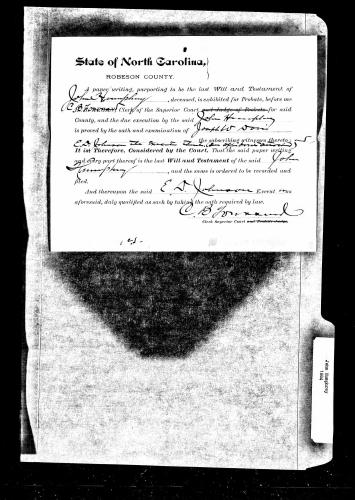 State of North Carolina,
ROBESON COUNTY.
A paper writing, purporting to be the last Will and Testament of
John Humphrey, deceased, is exhibited for Probate, before me
C. B. Townsend Clerk of the Superior Court and Judge of Probate for said
County, and the due execution by the said John Humphrey
is proved by the oath and examination of Joseph W.
the subscribing witnesses thereto;
E. D. Johnson
It is Therefore, Considered by the Court, That the said paper writing
and every part thereof is the last Will and Testament of the said John
Humphrey, and the same is ordered to be recorded and
filed.
And thereupon the said E. D. Johnson Execut
aforesaid, duly qualified as such by taking the oath required by law.
C. B. Townsend
Clerk Superior Court and Probate Judge.
John Humphrey